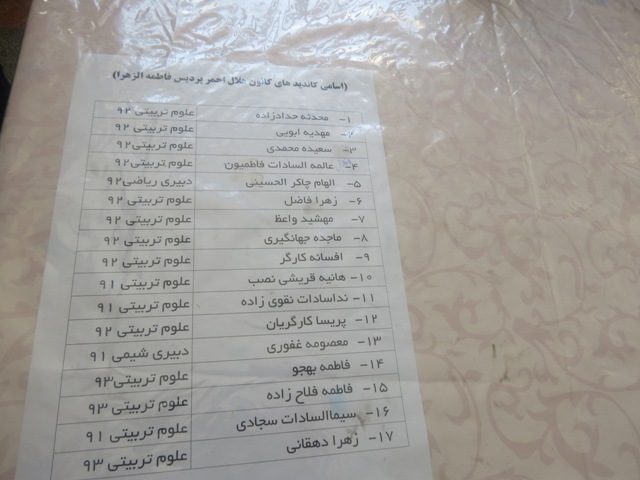 (اسامی کاندید های کانون هلال احمر پردیس فاطمه الزهرا)
۱- محدثه حدادزاده علوم تربیتی ۹۲
۲- مهدیه ابویی علوم تربیتی ۹۲
۳- سعیده محمدی علوم تربیتی۹۲
۴- عالمه السادات فاطمیون علوم تربیتی۹۲
۵- الهام چاکر الحسینی دبیری ریاضی۹۲
۶- زهرا فاضل علوم تربیتی ۹۲
۷- مهشید واعظ علوم تربیتی ۹۲
۸- ماجده جهانگیری علوم تربیتی ۹۲
۹- افسانه کارگر علوم تربیتی ۹۲
۱۰- هانیه قریشی نصب علوم تربیتی ۹۱
۱۱- نداسادات نقوی زاده علوم تربیتی ۹۱
۱۲- پریسا کارگریان علوم تربیتی ۹۲
۱۳- معصومه غفوری دبیری شیمی ۹۱
۱۴- فاطمه بهجو علوم تربیتی۹۳
۱۵- فاطمه فلاح زاده علوم تربیتی ۹۳
۱۶- سیماالسادات سجادی علوم تربیتی ۹۱
۱۷- زهرا دهقانی علوم تربیتی ۹۳